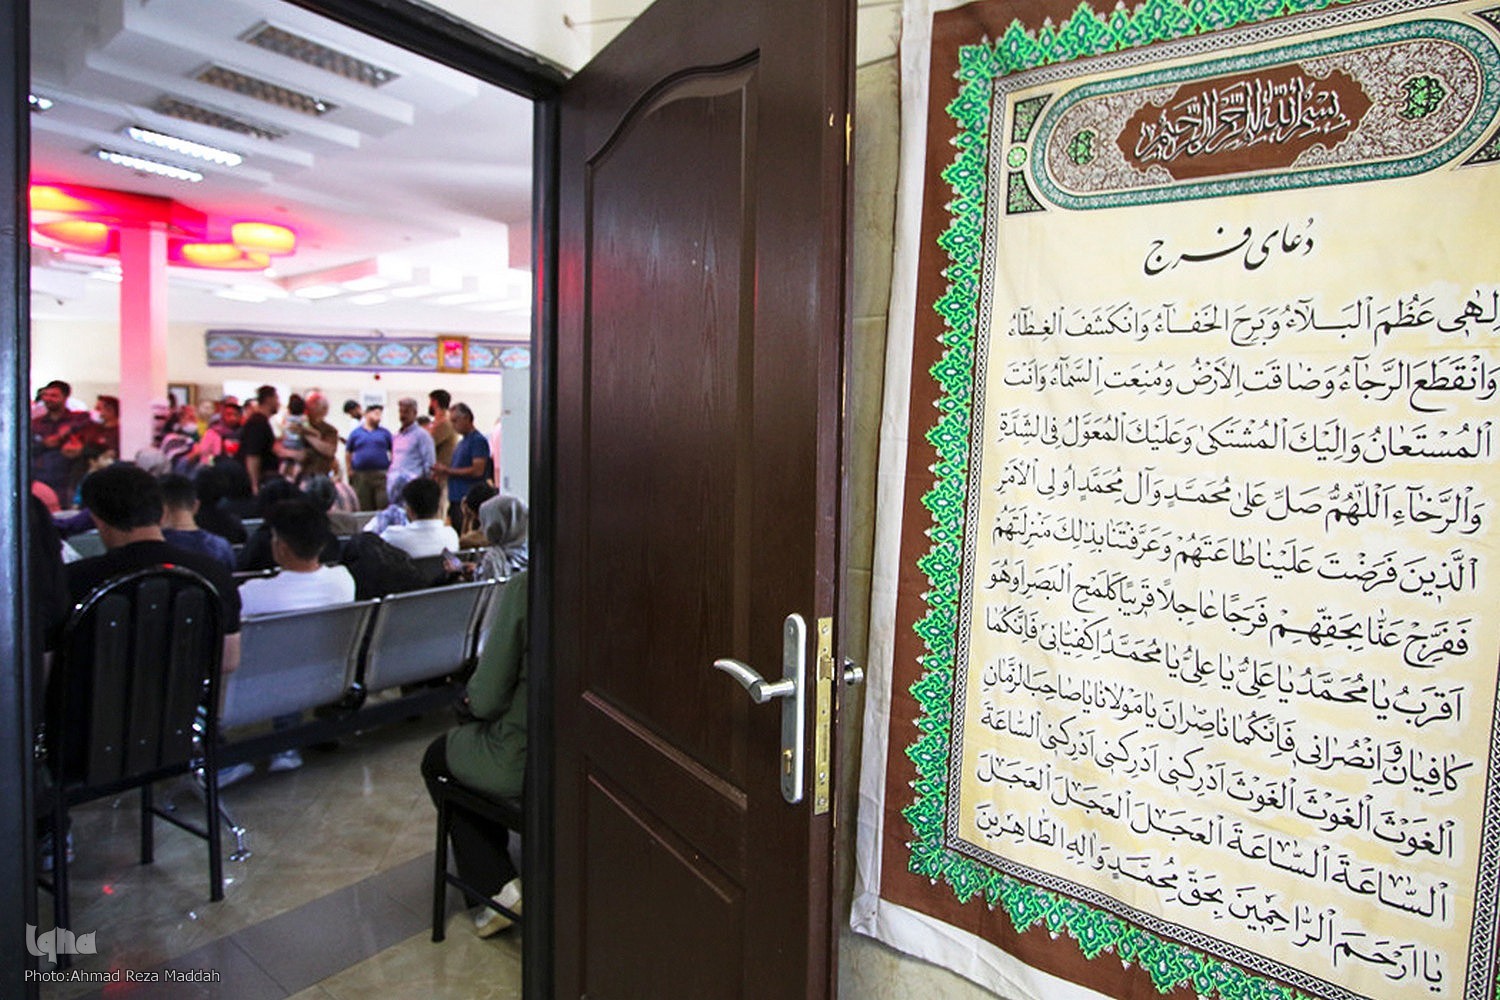 بِسْمِ اللهِ الرَّحْمٰنِ الرَّحِيمِ
دُعای فرج
اِلٰهِی عَظُمَ الْبَلآءُ وَبَرِحَ الْخَفآءُ وَانْكَشَفَ الْغِطآءُ
وَانْقَطَعَ الرَّجآءُ وَضاقَتِ الْاَرْضُ وَمُنِعَتِ السَّمآءُ وَاَنْتَ
الْمُسْتَعانُ وَاِلَيْكَ الْمُشْتَكىٰ وَعَلَيْكَ الْمُعَوَّلُ فِی الشِّدَّةِ
وَالرَّخآءِ اَللّٰهُمَّ صَلِّ عَلىٰ مُحَمَّدٍ وَآلِ مُحَمَّدٍ اُولِی الْاَمْرِ
الَّذينَ فَرَضْتَ عَلَيْنا طاعَتَهُمْ وَعَرَّفْتَنا بِذٰلِكَ مَنْزِلَتَهُمْ
فَفَرِّجْ عَنّا بِحَقِّهِمْ فَرَجًا عاجِلاً قَريبًا كَلَمْحِ الْبَصَرِ اَوْ هُوَ
اَقْرَبُ يا مُحَمَّدُ يا عَلِیُّ يا عَلِیُّ يا مُحَمَّدُ اِكْفِيانی فَاِنَّكُما
كافِيانِ وَانْصُرانی فَاِنَّكُما ناصِرانِ يا مَوْلانا يا صاحِبَ الزَّمانِ
الْغَوْثَ الْغَوْثَ الْغَوْثَ اَدْرِكْنی اَدْرِكْنی اَدْرِكْنی السّاعَةَ
السّاعَةَ السّاعَةَ الْعَجَلَ الْعَجَلَ الْعَجَلَ
يا اَرْحَمَ الرّاحِمينَ بِحَقِّ مُحَمَّدٍ وَآلِهِ الطّاهِرينَ
Iqna
Photo:Ahmad Reza Maddah